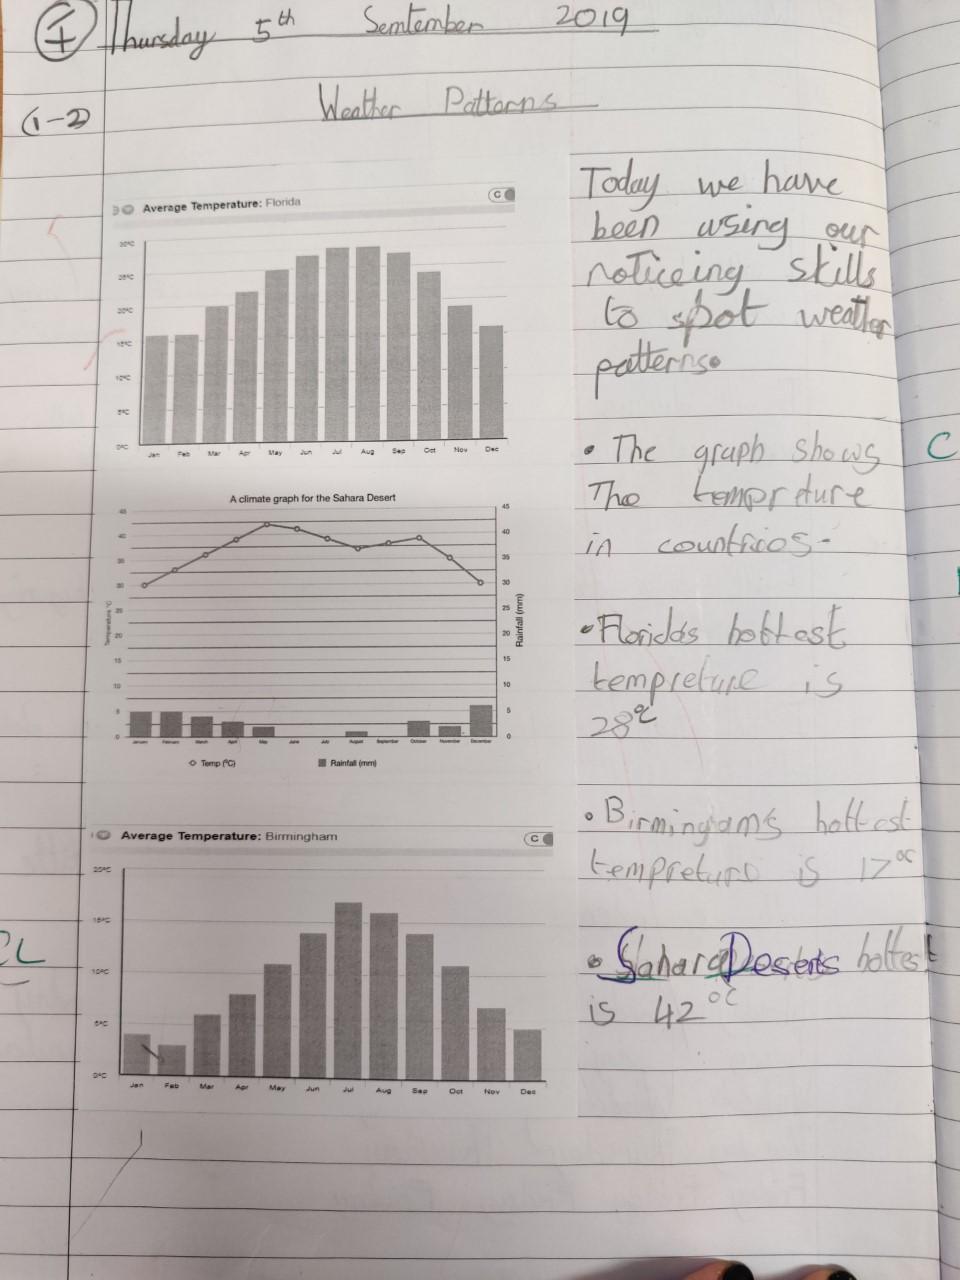 I
Thursday 5th Semtember 2019
(1-2)
Weather Patterns
Average Temperature: Florida
C
30°C
25°C
20°C
15°C
10°C
5°C
0°C
Jan Feb Mar Apr May Jun Jul Aug Sep Oct Nov Dec
A climate graph for the Sahara Desert
45
40
35
30
25
20
15
10
5
0
Temperature °C
45
40
35
30
25
20
15
10
5
0
Rainfall (mm)
January February March April May June July August September October November December
Temp (°C) Rainfall (mm)
Average Temperature: Birmingham
C
20°C
15°C
10°C
5°C
0°C
Jan Feb Mar Apr May Jun Jul Aug Sep Oct Nov Dec
Today we have
been using our
noticeing skills
to spot weather
patterns.
• The graph shows
The temprature
in countries.
• Floridas hottest
tempreture is
28°c
• Birmingams hottest
tempreture is 17°c
• Sahara Deserts hottest
is 42°c
CL
C